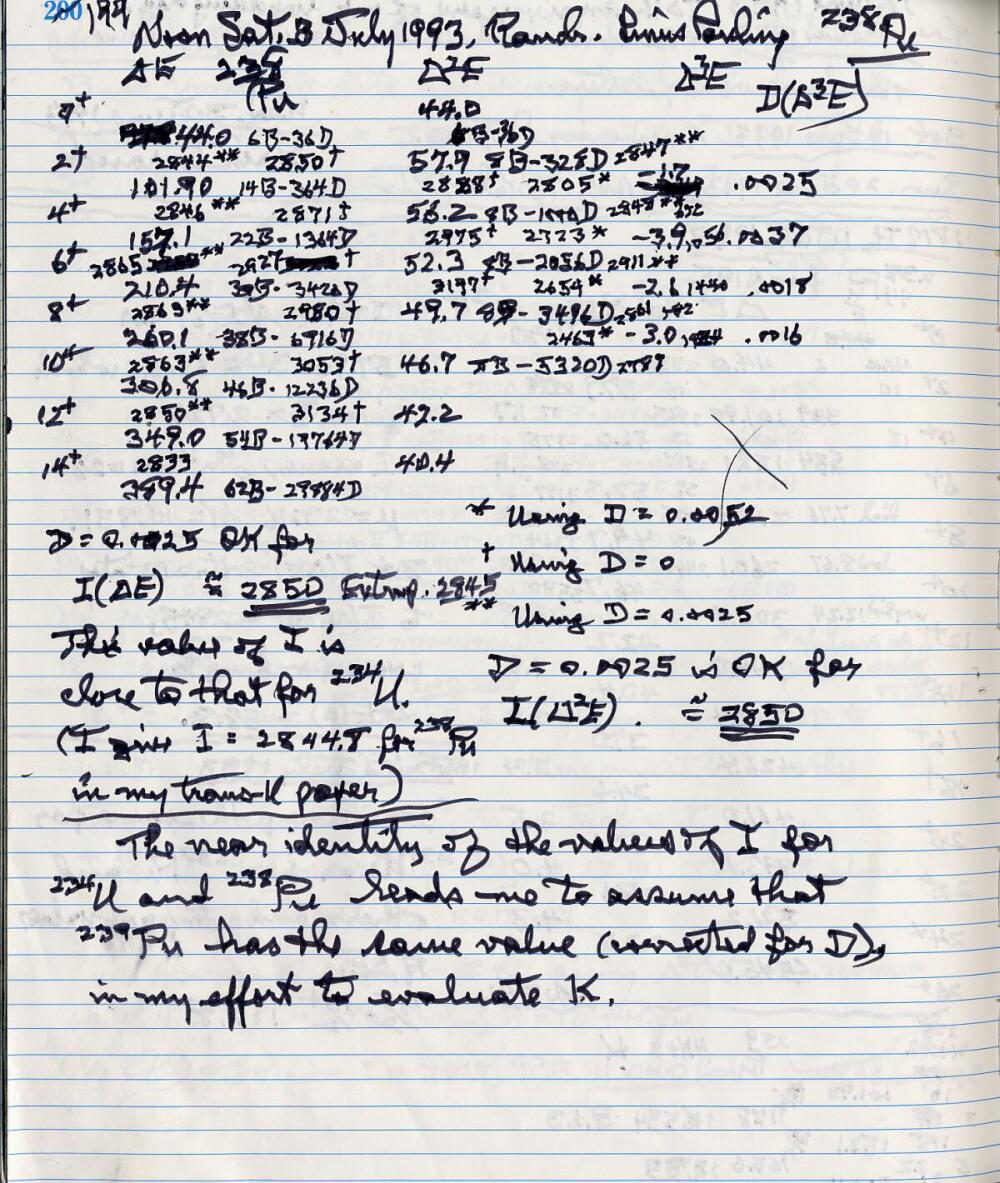 200, 199
Noon Sat. 3 July 1993, Ranch. Linus Pauling ²³⁸Pu
ΔE ²³⁸Pu Δ²E Δ³E D(Δ³E)
44.0
44.0 6B-36D 6B-36D
2+ 2844** 2850† 57.9 8B-328D 2847**
101.90 14B-364D 2888† 2805* -1.7 .0025
4+ 2846** 2871† 56.2
157.1 22B-1364D 2975† 2723* -3.9 .0037
6+ 2865 ** 2927 † 52.3 8B-2056D 2911**
210.4 30B-3420D 3197† 2654* -2.6 1440 .0018
8+ 2863** 2980† 49.7 8B-3496D
260.1 38B-6916D 2463* -3.0 .0016
10+ 2863** 3053† 46.7 8B-5320D
306.8 46B-12236D
12+ 2850** 3134† 42.2
349.0 54B-
14+ 2833 40.4
389.4 62B-
* Using D = 0.0052
D = 0.0025 OK for
† Using D = 0
I(ΔE) ≅ 2850 Extrap. 2845
** Using D = 0.0025
This value of I is
D = 0.0025 is OK for
close to that for ²³⁴U.
I(Δ²E). ≅ 2850
(I give I = 2844.8 for ²³⁸Pu
in my trans-K paper)
The near identity of the values of I for
²³⁴U and ²³⁸Pu leads me to assume that
²³⁹Pu has the same value (corrected for D),
in my effort to evaluate K.